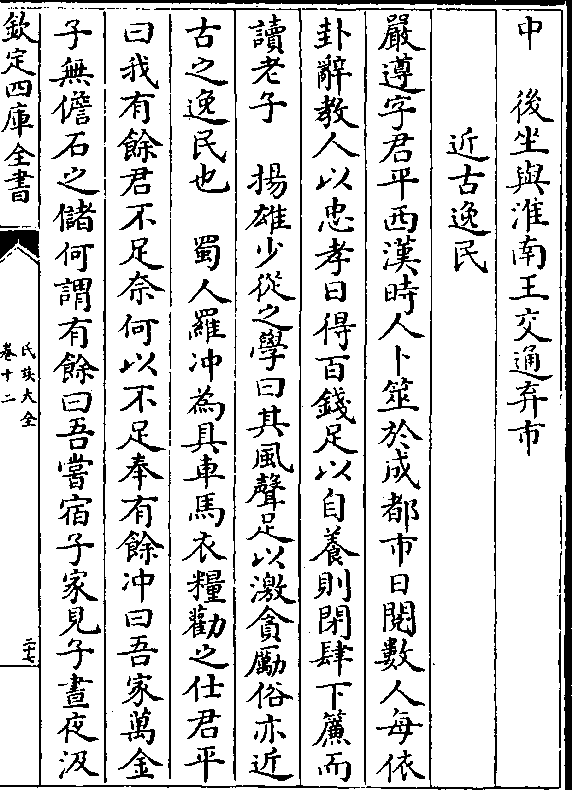 中　後坐與淮南王交通弃市
近古逸民
嚴遵字君平西漢時人卜筮於成都市日閱數人每依
卦辭教人以忠孝日得百錢足以自養則閉肆下簾而
讀老子　揚雄少從之學曰其風聲足以激貪勵俗亦近
古之逸民也　蜀人羅冲為具車馬衣糧勸之仕君平
曰我有餘君不足奈何以不足奉有餘冲曰吾家萬金
子無儋石之儲何謂有餘曰吾嘗宿子家見子晝夜汲
欽定四庫全書
氏族大全
卷十二
二十七